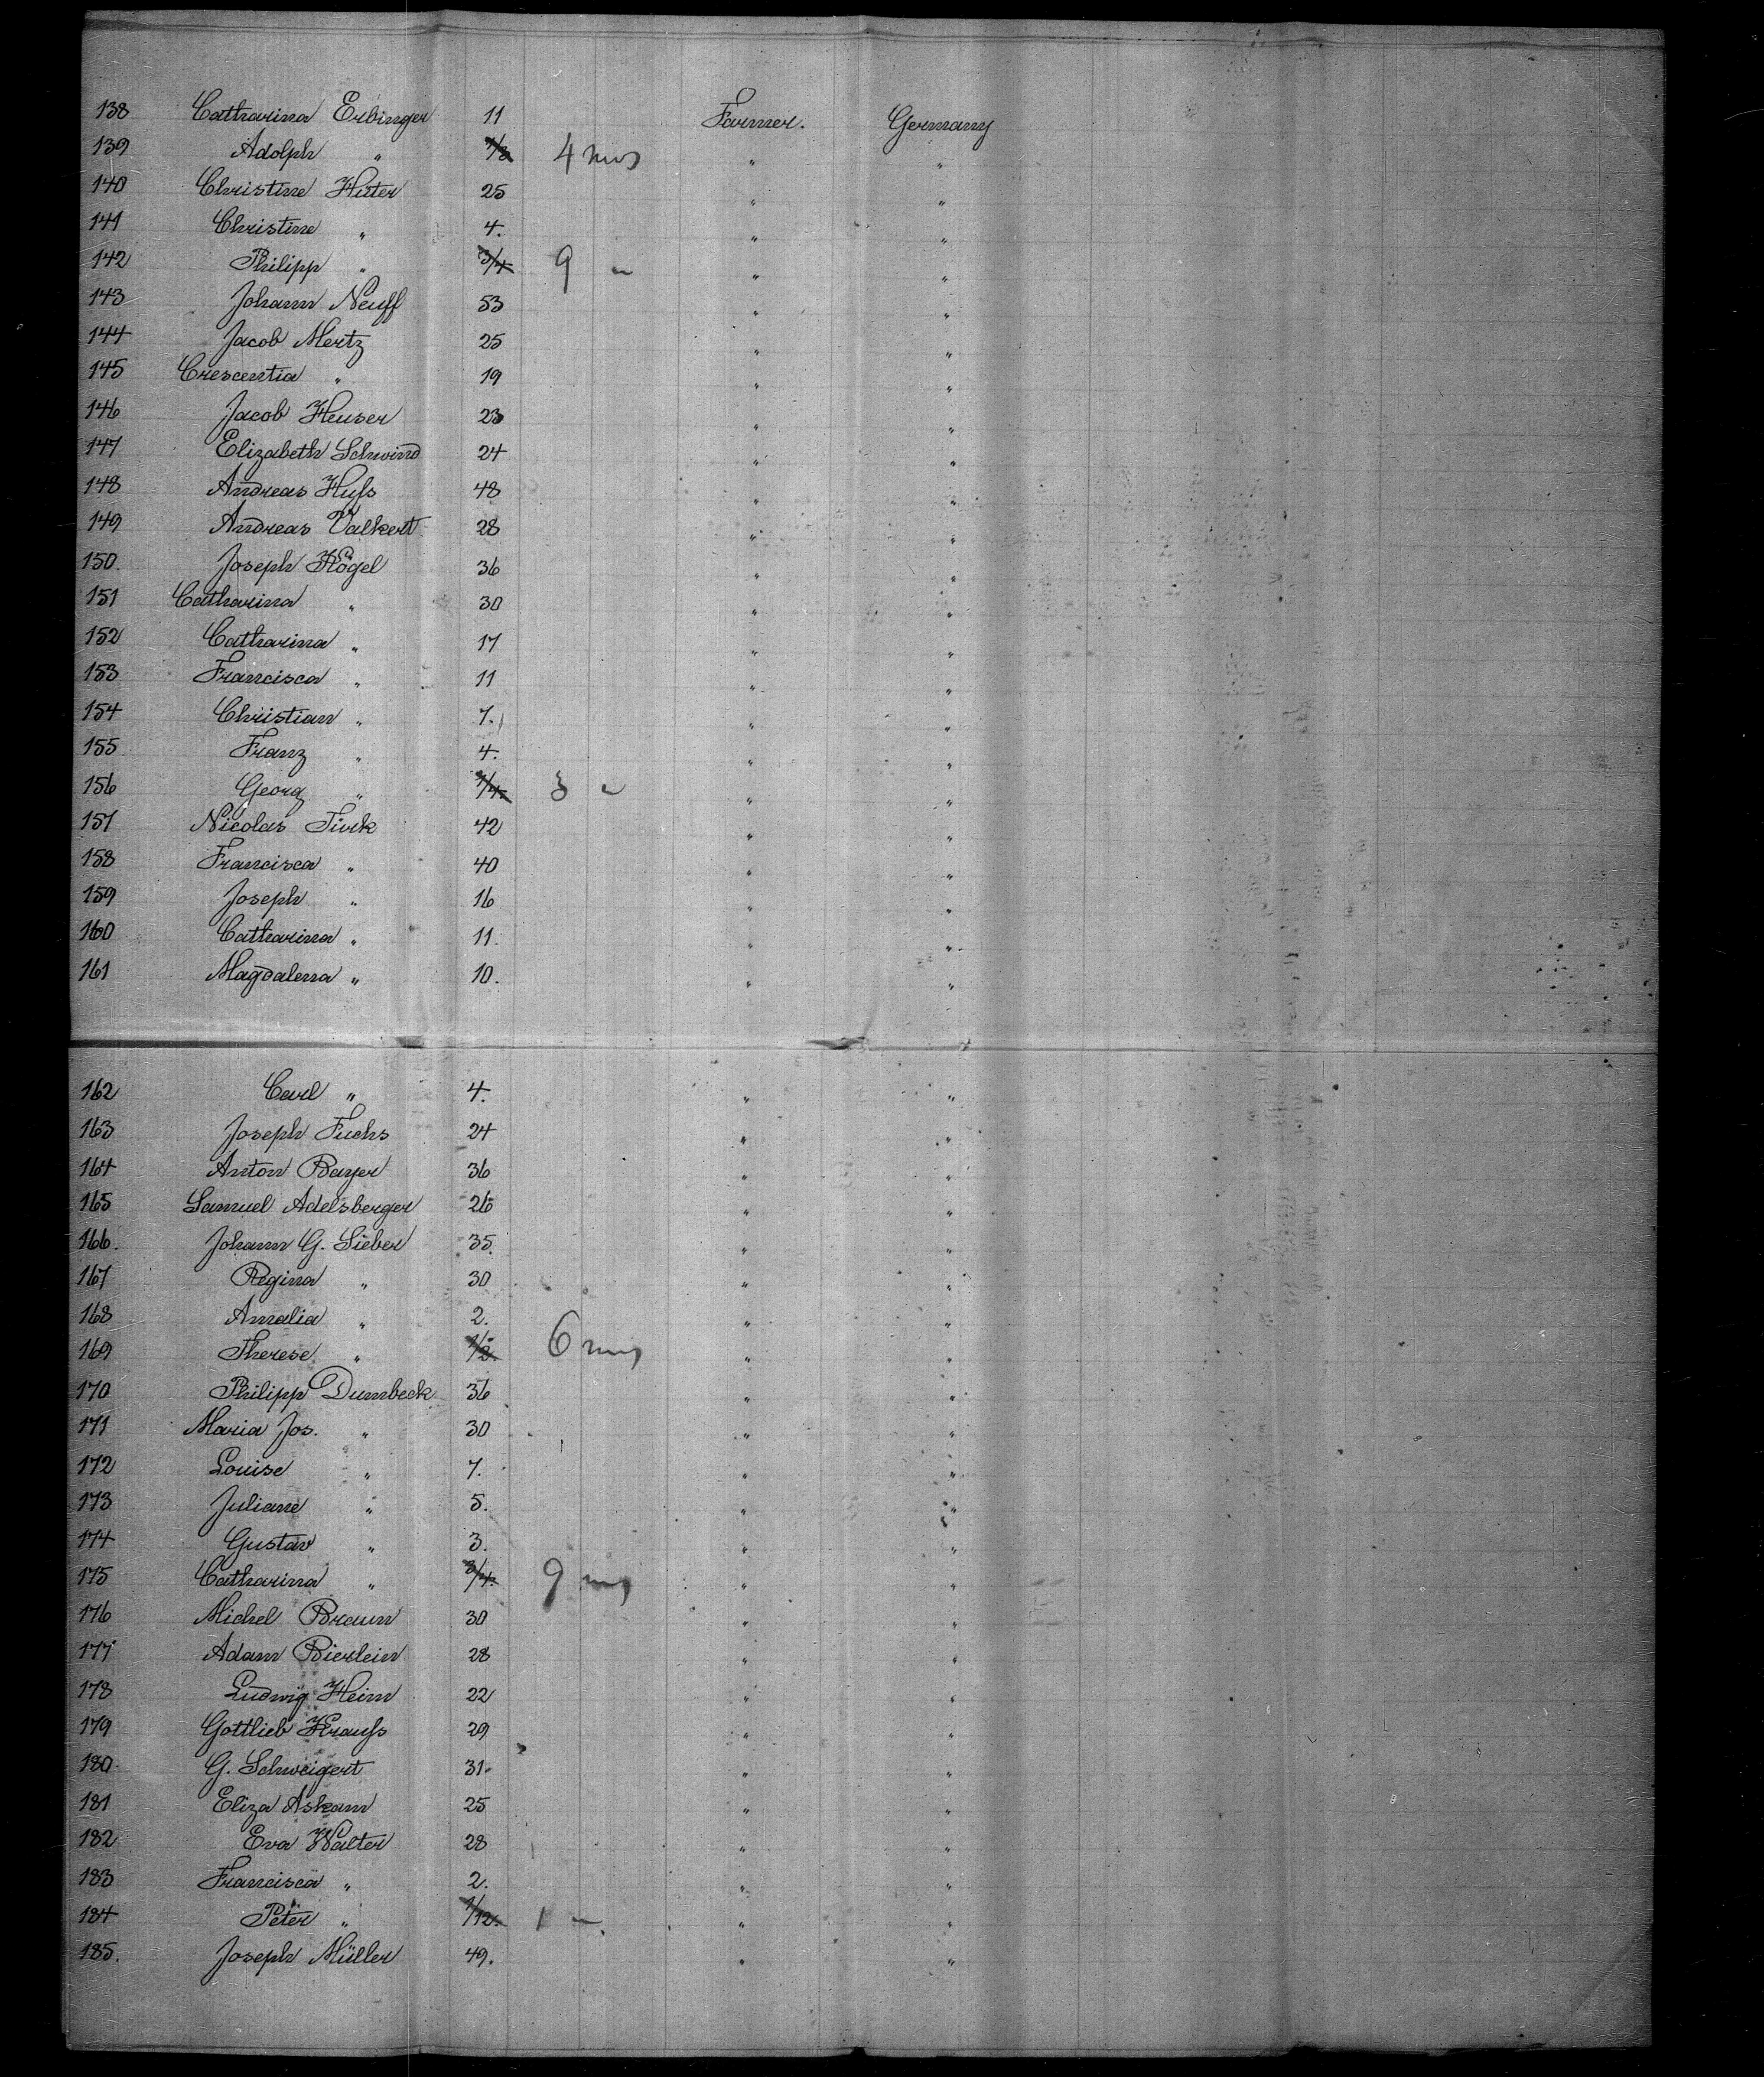 138 Catharina Erbinger 11 Farmer. Germany
139 Adolph " 1/3 4 mos " "
140 Christine Huter 25 " "
141 Christine " 4. " "
142 Philipp " 3/4 9 " " "
143 Johann Neuff 53 " "
144 Jacob Mertz 25 " "
145 Crescentia " 19 " "
146 Jacob Heuser 23 " "
147 Elizabeth Schwind 24 " "
148 Andreas Huſs 48 " "
149 Andreas Valkert 28 " "
150. Joseph Kögel 36 " "
151 Catharina " 30 " "
152 Catharina " 17 " "
153 Francisca " 11 " "
154 Christian " 7. " "
155 Franz " 4. " "
156 Georg " 1/4. 3 " " "
157 Nicolas Türk 42 " "
158 Francisca " 40 " "
159 Joseph " 16 " "
160 Catharina " 11. " "
161 Magdalena " 10. " "
162 Carl " 4. " "
163 Joseph Fuchs 24 " "
164 Anton Bayer 36 " "
165 Samuel Adelsberger 26 " "
166. Johann G. Sieber 35. " "
167 Regina " 30 " "
168 Amalia " 2. " "
169 Therese " 1/2. 6 mos " "
170 Philipp Dumbeck 36 " "
171 Maria Jos. " 30 " "
172 Louise " 7. " "
173 Juliane " 5. " "
174 Gustav " 3. " "
175 Catharina " 3/4. 9 mos " "
176 Michel Braun 30 " "
177 Adam Bierlein 28 " "
178 Ludwig Heim 22 " "
179 Gottlieb Krauſs 29 " "
180. G. Schweigert 31. " "
181 Eliza Askam 25 " "
182 Eva Walter 28 " "
183 Francisca " 2. " "
184 Peter " 1/12. 1 " " "
185. Joseph Müller 49. " "